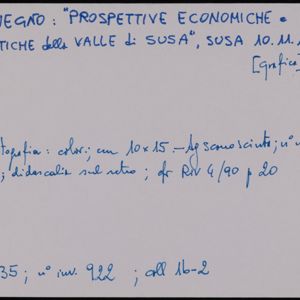 NEGNO : "PROSPETTIVE ECONOMICHE e
TICHE della VALLE di SUSA", SUSA 10.11.1
[Grafica]
tografia : color.; cm 10x15.- Ag sconosciuto; n°
; didascalia sul retro ; cfr Riv 4/90 p 20
35 ; n° inv. 922 ; coll 16-2